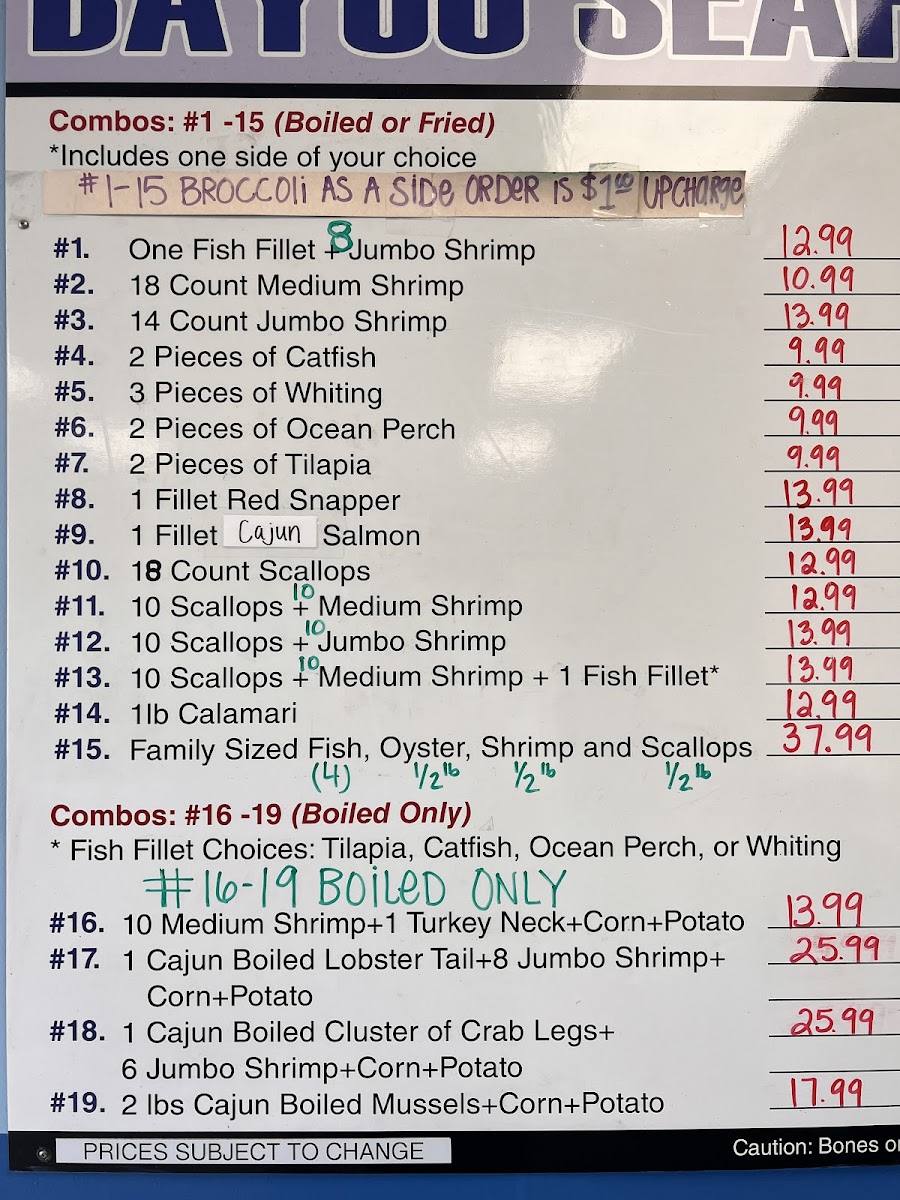 BAYOU SEAF
Combos: #1 -15 (Boiled or Fried)
*Includes one side of your choice
#1-15 BROCCOLi AS A SIDE ORDER IS $1.00 UPCHARGE
#1. One Fish Fillet + 8 Jumbo Shrimp 12.99
#2. 18 Count Medium Shrimp 10.99
#3. 14 Count Jumbo Shrimp 13.99
#4. 2 Pieces of Catfish 9.99
#5. 3 Pieces of Whiting 9.99
#6. 2 Pieces of Ocean Perch 9.99
#7. 2 Pieces of Tilapia 9.99
#8. 1 Fillet Red Snapper 13.99
#9. 1 Fillet Cajun Salmon 13.99
#10. 18 Count Scallops 12.99
#11. 10 Scallops + 10 Medium Shrimp 12.99
#12. 10 Scallops + 10 Jumbo Shrimp 13.99
#13. 10 Scallops + 10 Medium Shrimp + 1 Fish Fillet* 13.99
#14. 1lb Calamari 12.99
#15. Family Sized Fish, Oyster, Shrimp and Scallops 37.99
(4) 1/2 lb 1/2 lb 1/2 lb
Combos: #16 -19 (Boiled Only)
* Fish Fillet Choices: Tilapia, Catfish, Ocean Perch, or Whiting
#16-19 BOILED ONLY
#16. 10 Medium Shrimp+1 Turkey Neck+Corn+Potato 13.99
#17. 1 Cajun Boiled Lobster Tail+8 Jumbo Shrimp+ 25.99
Corn+Potato
#18. 1 Cajun Boiled Cluster of Crab Legs+ 25.99
6 Jumbo Shrimp+Corn+Potato
#19. 2 lbs Cajun Boiled Mussels+Corn+Potato 17.99
PRICES SUBJECT TO CHANGE
Caution: Bones o